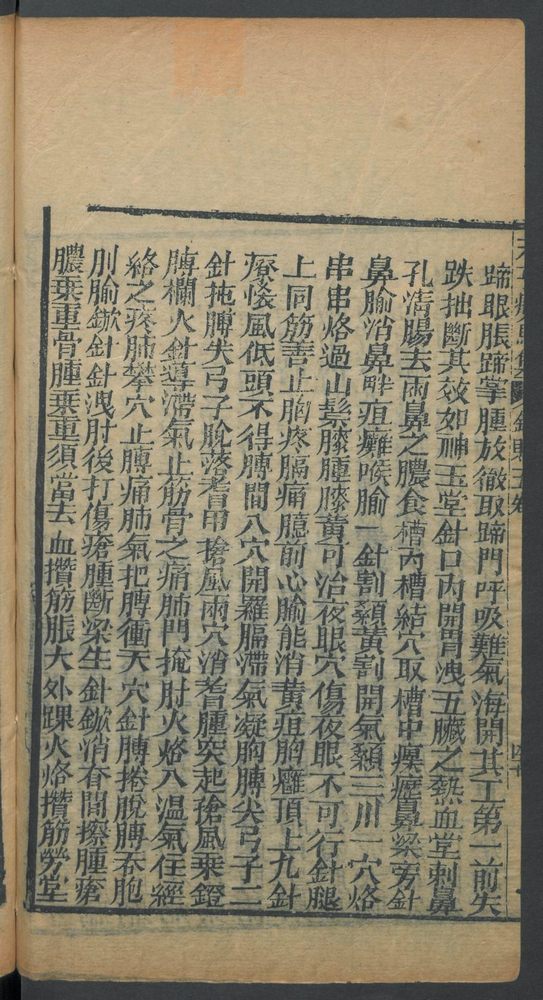 蹄眼脹蹄掌腫放徹取蹄門呼吸難氣海開其工第一前失
跌拙斷其效如神玉堂針口內開胃洩五臟之熱血堂刺鼻
孔清腸去兩鼻之膿食槽內槽結穴取槽中瘼癧鼻梁旁針
鼻腧消鼻畔疽癰喉腧一針割顙黃割開氣顙三川一穴烙
串串烙過山䯂膝腫膝黃可治夜眼穴傷夜眼不可行針腿
上同筋善止胸疼膈痛臆前心腧能消黃疽胸癰頂上九針
療惱風低頭不得膊間八穴開羅膈滯氣凝胸膊尖弓子二
針拖膊失弓子脫落者用搶風兩穴消者腫突起搶風乗鐙
膊欄火針導滯氣止筋骨之痛肺門掩肘火烙入溫氣住經
絡之疼肺攀穴止膊痛肺氣把膊衝天穴針膊捲脫膊吞胞
別腧𨫼針針洩肘後打傷瘡腫斷梁生針𨫼消脊間擦腫瘡
膿乗重骨腫乗重須當去血攢筋脹大外踝火烙攢筋勞堂